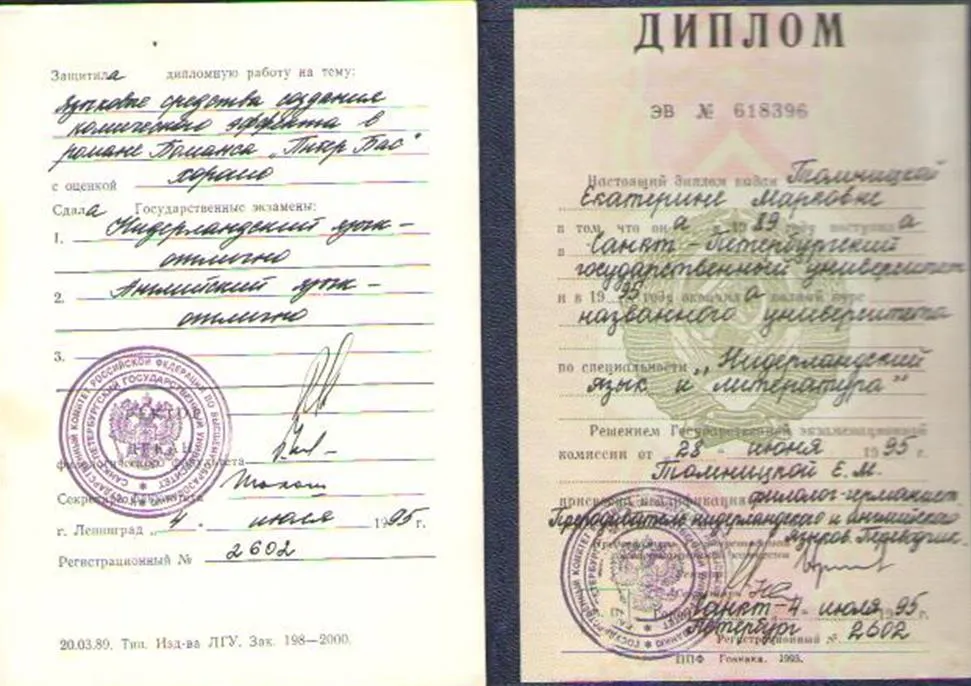 Защитила дипломную работу на тему:
Языковые средства создания
комического эффекта в
романе Боманса „Питер Бас"
с оценкой хорошо
Сдала Государственные экзамены:
1. Нидерландский язык –
отлично
2. Английский язык –
отлично
3.
РЕКТОР
ДЕКАН
филологического факультета
Секретарь факультета
г. Ленинград „4" июля 1995 г.
Регистрационный № 2602
20.03.89. Тип. Изд-ва ЛГУ. Зак. 198—2000.
ДИПЛОМ
ЭВ № 618396
Настоящий диплом выдан Толмницкой
Екатерине Марковне
в том, что она в 1989 году поступила
в Санкт-Петербургский
государственный университет
и в 1995 году окончила полный курс
названного университета
по специальности „Нидерландский
язык и литература"
Решением Государственной экзаменационной
комиссии от „28" июня 1995 г.
Толмницкой Е. М.
присвоена квалификация филолог-германист
Преподаватель нидерландского и английского
языков. Переводчик.
Город Санкт- 4 июля 1995 г.
Петербург
Регистрационный № 2602
ППФ Гознака. 1993.